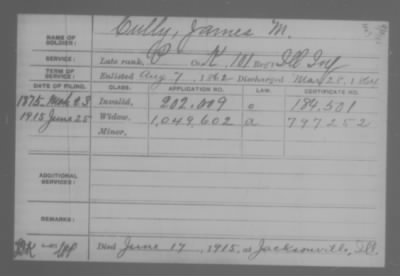 NAME OF SOLDIER: Cully, James M.
SERVICE: Late rank, P Co. K, 111 Reg't Ill Inf
TERM OF SERVICE: Enlisted Aug 7, 1862 Discharged Mar 28, 1864
DATE OF FILING. CLASS. APPLICATION NO. LAW. CERTIFICATE NO.
1875 Mch 23 Invalid, 202,009 c 184,501
1915 June 25 Widow, 1,049,602 a 797252
Minor,
ADDITIONAL SERVICES:
REMARKS:
Died June 17, 1915, at Jacksonville, Ill.